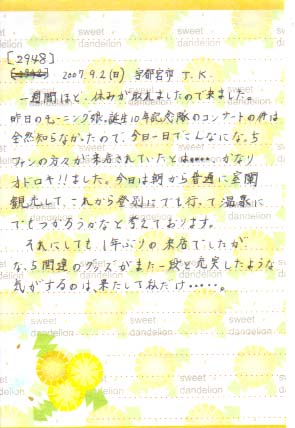 [2948]
2007.9.2(日) 宇都宮市 T.K.
一週間ほど、休みが取れましたので来ました。
昨日のモーニング娘。誕生10年記念隊のコンサートの件は
全然知らなかったので、今日一日でこんなになっち
ファンの方々が来店されていたとは……かなり
オドロキ!!ました。今日は朝から普通に室蘭
観光して、これから登別にでも行って温泉に
でもつかろうかなと考えております。
それにしても、1年ぶりの来店でしたが
なっち関連のグッズがまた一段と充実したような
気がするのは、果たして私だけ……。
sweet dandelion
sweet dandelion
sweet dandelion